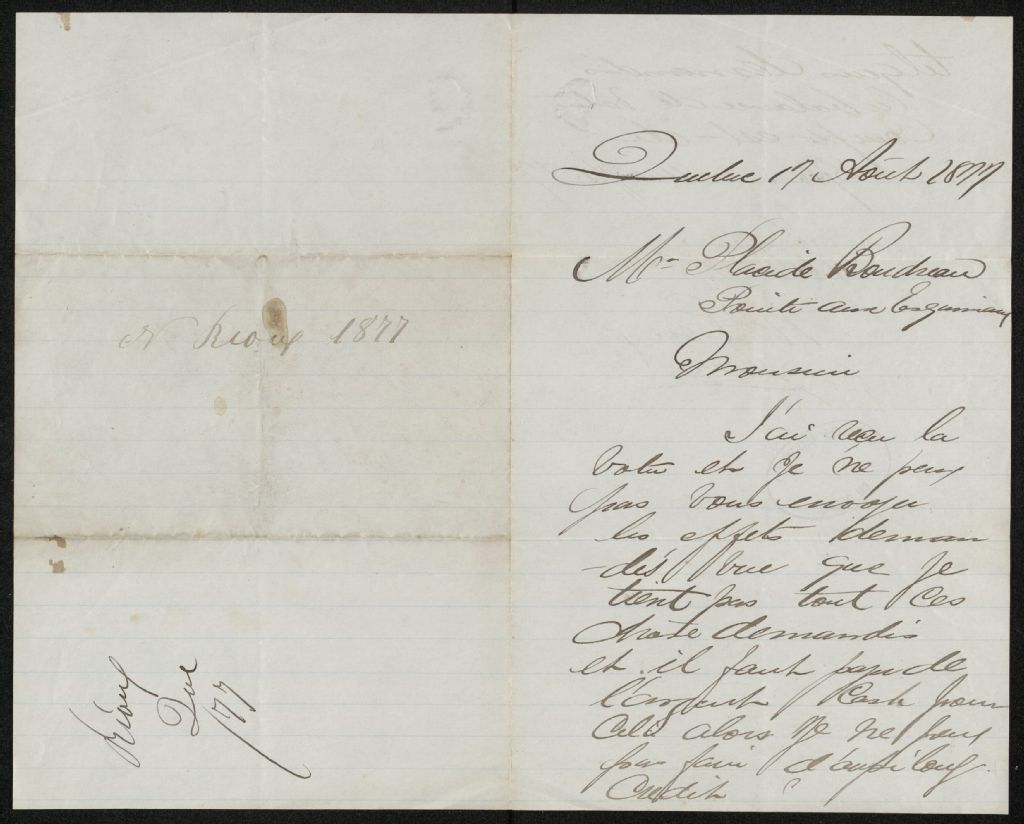 N Rioux 1877
Rioux
Que
/77
Quebec 17 Août 1877
Mr Placide Boudreau
Pointe aux Esquimaux
Monsieur
J'ai reçu la
votre et Je ne peux
pas vous envoyer
les effets deman
-dés vue que Je
tient pas tout ces
chose demandés
et il faut paye de
l'argent Cash pour
cela alors Je ne peux
pas faire d'aussi long
Credit